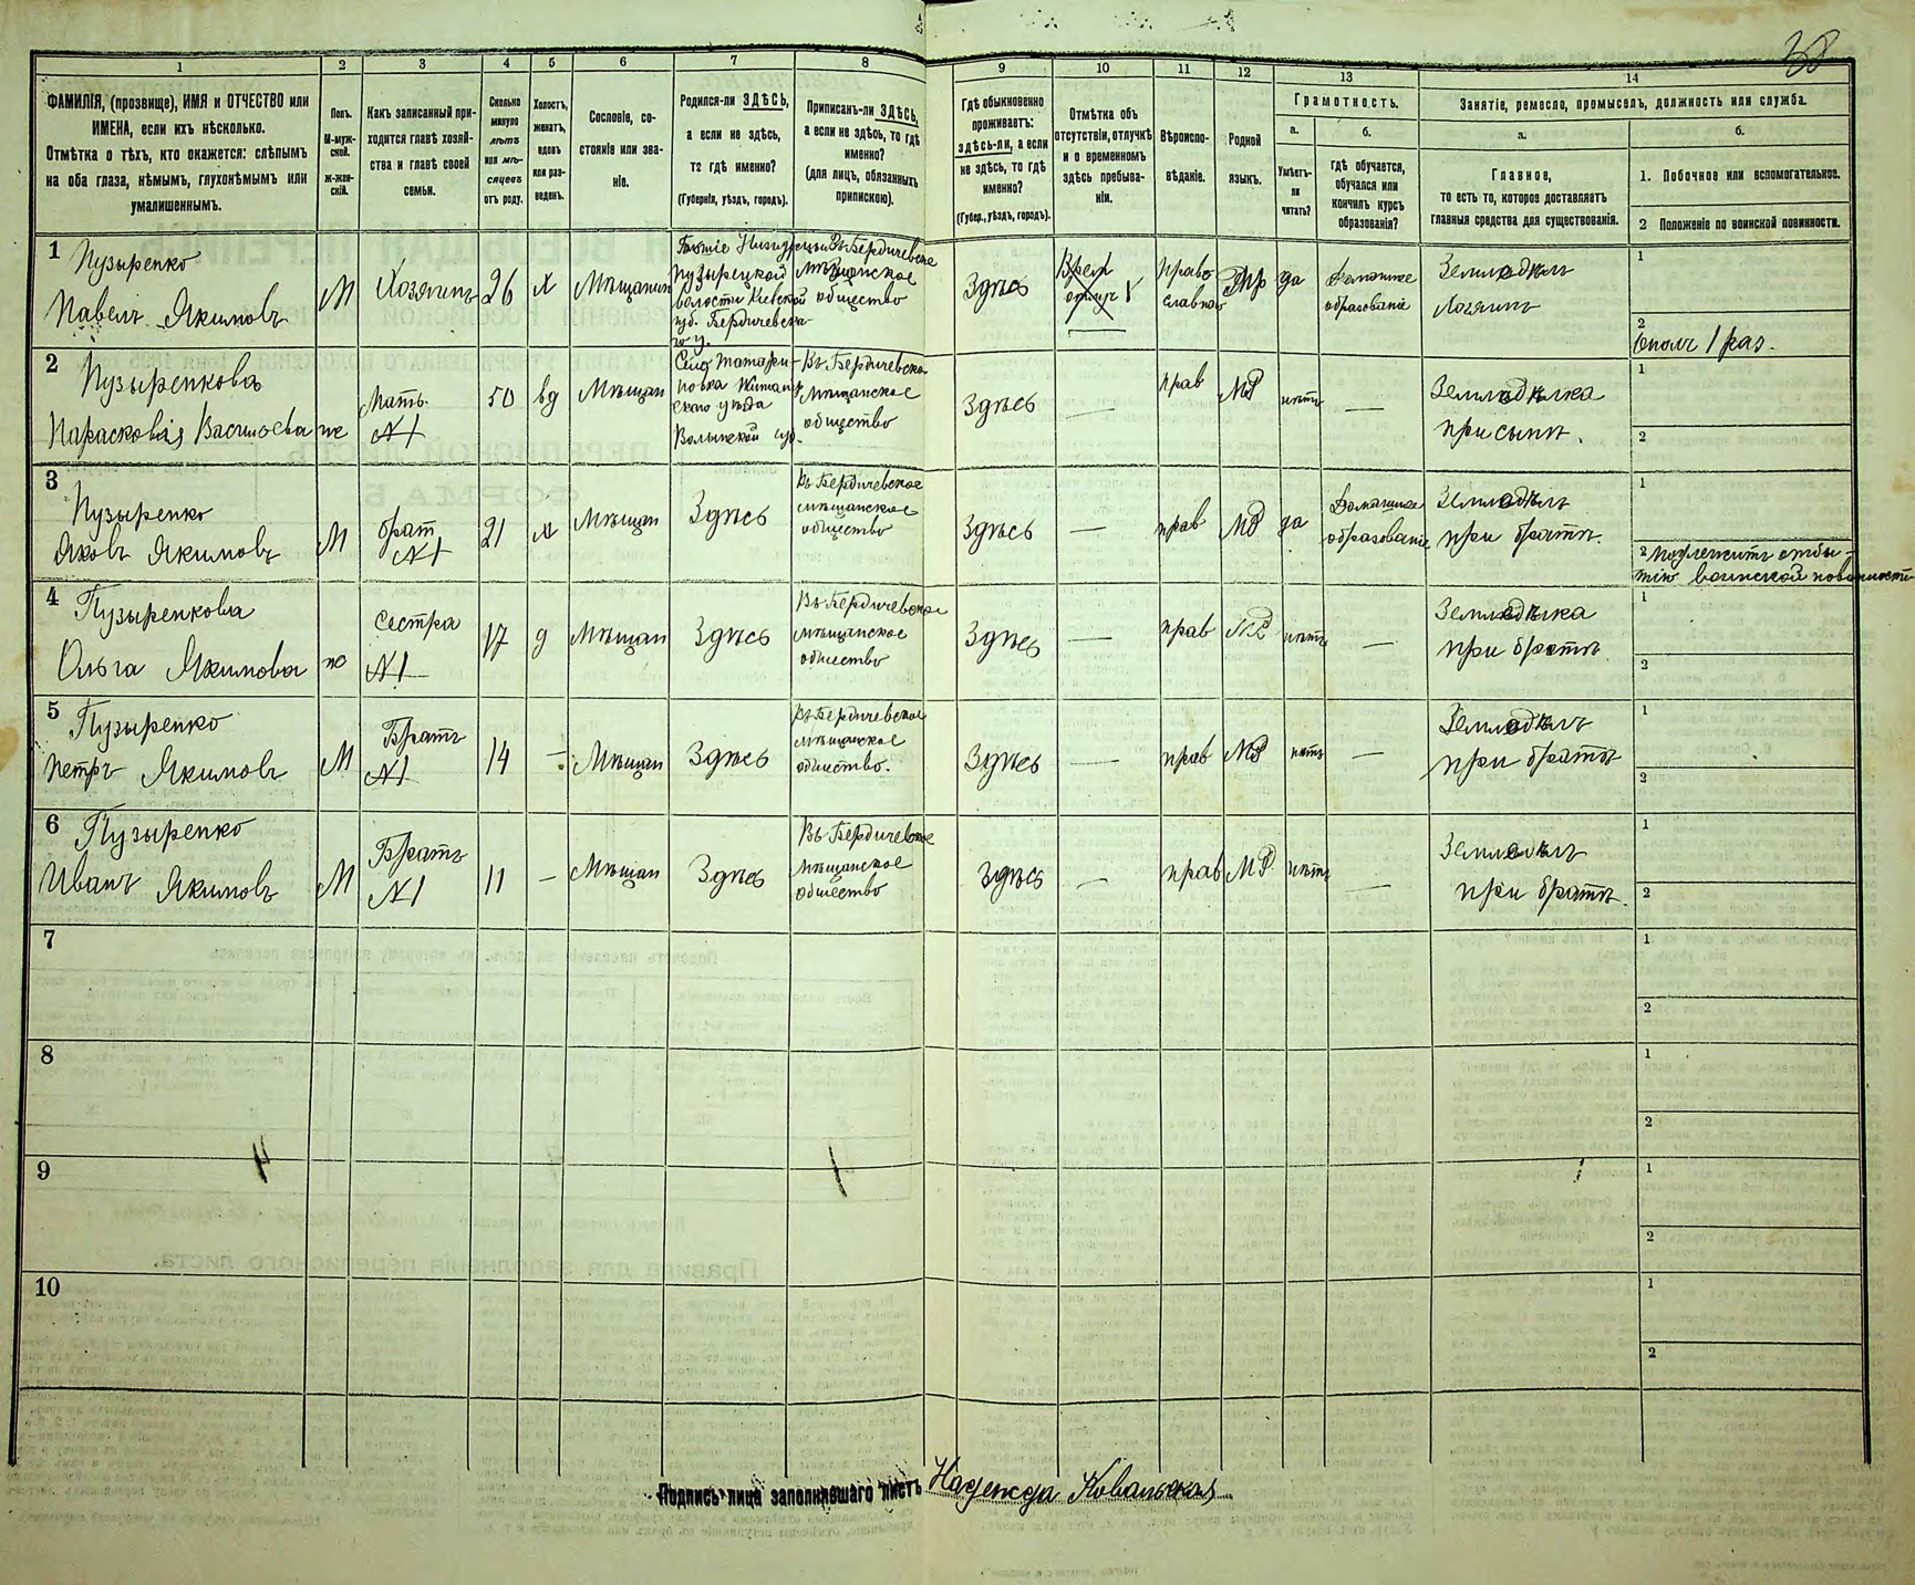 38
1 2 3 4 5 6 7 8 9 10 11 12 13 14
ФАМИЛІЯ, (прозвище), ИМЯ и ОТЧЕСТВО или
ИМЕНА, если ихъ нѣсколько.
Отмѣтка о тѣхъ, кто окажется: слѣпымъ
на оба глаза, нѣмымъ, глухонѣмымъ или
умалишеннымъ.
Полъ.
М-муж-
ской.
Ж-жен-
скій.
Какъ записанный при-
ходится главѣ хозяй-
ства и главѣ своей
семьи.
Сколько
минуло
лѣтъ
или мѣ-
сяцевъ
отъ роду.
Холостъ,
женатъ,
вдовъ
или раз-
веденъ.
Сословіе, со-
стояніе или зва-
ніе.
Родился-ли ЗДѢСЬ,
а если не здѣсь,
то гдѣ именно?
(Губернія, уѣздъ, городъ).
Приписанъ-ли ЗДѢСЬ,
а если не здѣсь, то гдѣ
именно?
(для лицъ, обязанныхъ
припискою).
Гдѣ обыкновенно
проживаетъ:
здѣсь-ли, а если
не здѣсь, то гдѣ
именно?
(Губер., уѣздъ, городъ).
Отмѣтка объ
отсутствіи, отлучкѣ
и о временномъ
здѣсь пребыва-
ніи.
Вѣроиспо-
вѣданіе.
Родной
языкъ.
Грамотность.
а.
Умѣетъ-
ли
читать?
б.
гдѣ обучается,
обучался или
кончилъ курсъ
образованія?
Занятіе, ремесло, промыселъ, должность или служба.
а.
Главное,
то есть то, которое доставляетъ
главныя средства для существованія.
б.
1. Побочное или вспомогательное.
2 Положеніе по воинской повинности.
1 Пузыренко
Павелъ Якимовъ
М
Хозяинъ
26
х
Мѣщанинъ
Пузырецкой
волости Кіевской
губ. Бердичевска-
го у.
Въ Бердичевское
Мѣщанское
общество
Здѣсь
Право
славное
да
Домашнее
образованіе
Земледѣлъ
Хозяинъ
1
2
ополч 1 раз.
2 Пузыренкова
Парасковія Васильева
же
Мать
N1
50
вд
Мѣщан
Село Татари-
новка Житомир
скаго уѣзда
Волынской губ.
Въ Бердичевское
Мѣщанское
общество
Здѣсь
—
прав
МР
нѣтъ
—
Земледѣлка
при сынѣ.
1
2
3 Пузыренко
Яковъ Якимовъ
М
брат
N1
21
х
Мѣщан
Здѣсь
Въ Бердичевское
мѣщанское
общество
Здѣсь
—
прав
МР
да
Домашнее
образованіе
Земледѣлъ
при братѣ.
1
2 подлежитъ отбы-
тію воинской повинности
4 Пузыренкова
Ольга Якимова
же
Сестра
N1
17
д
Мѣщан
Здѣсь
Въ Бердичевское
мѣщанское
общество
Здѣсь
—
прав
МР
нѣтъ
—
Земледѣлка
при братѣ
1
2
5 Пузыренко
Петръ Якимовъ
М
Братъ
N1
14
—
Мѣщан
Здѣсь
Въ Бердичевское
мѣщанское
общество.
Здѣсь
—
прав
МР
нѣтъ
—
Земледѣлъ
при братѣ
1
2
6 Пузыренко
Иванъ Якимовъ
М
Братъ
N1
11
—
Мѣщан
Здѣсь
Въ Бердичевское
мѣщанское
общество
Здѣсь
—
прав
МР
нѣтъ
—
Земледѣлъ
при братѣ.
1
2
7
1
2
8
1
2
9
1
2
10
1
2
Подпись лица заполнявшаго листъ Надежда Ковальская